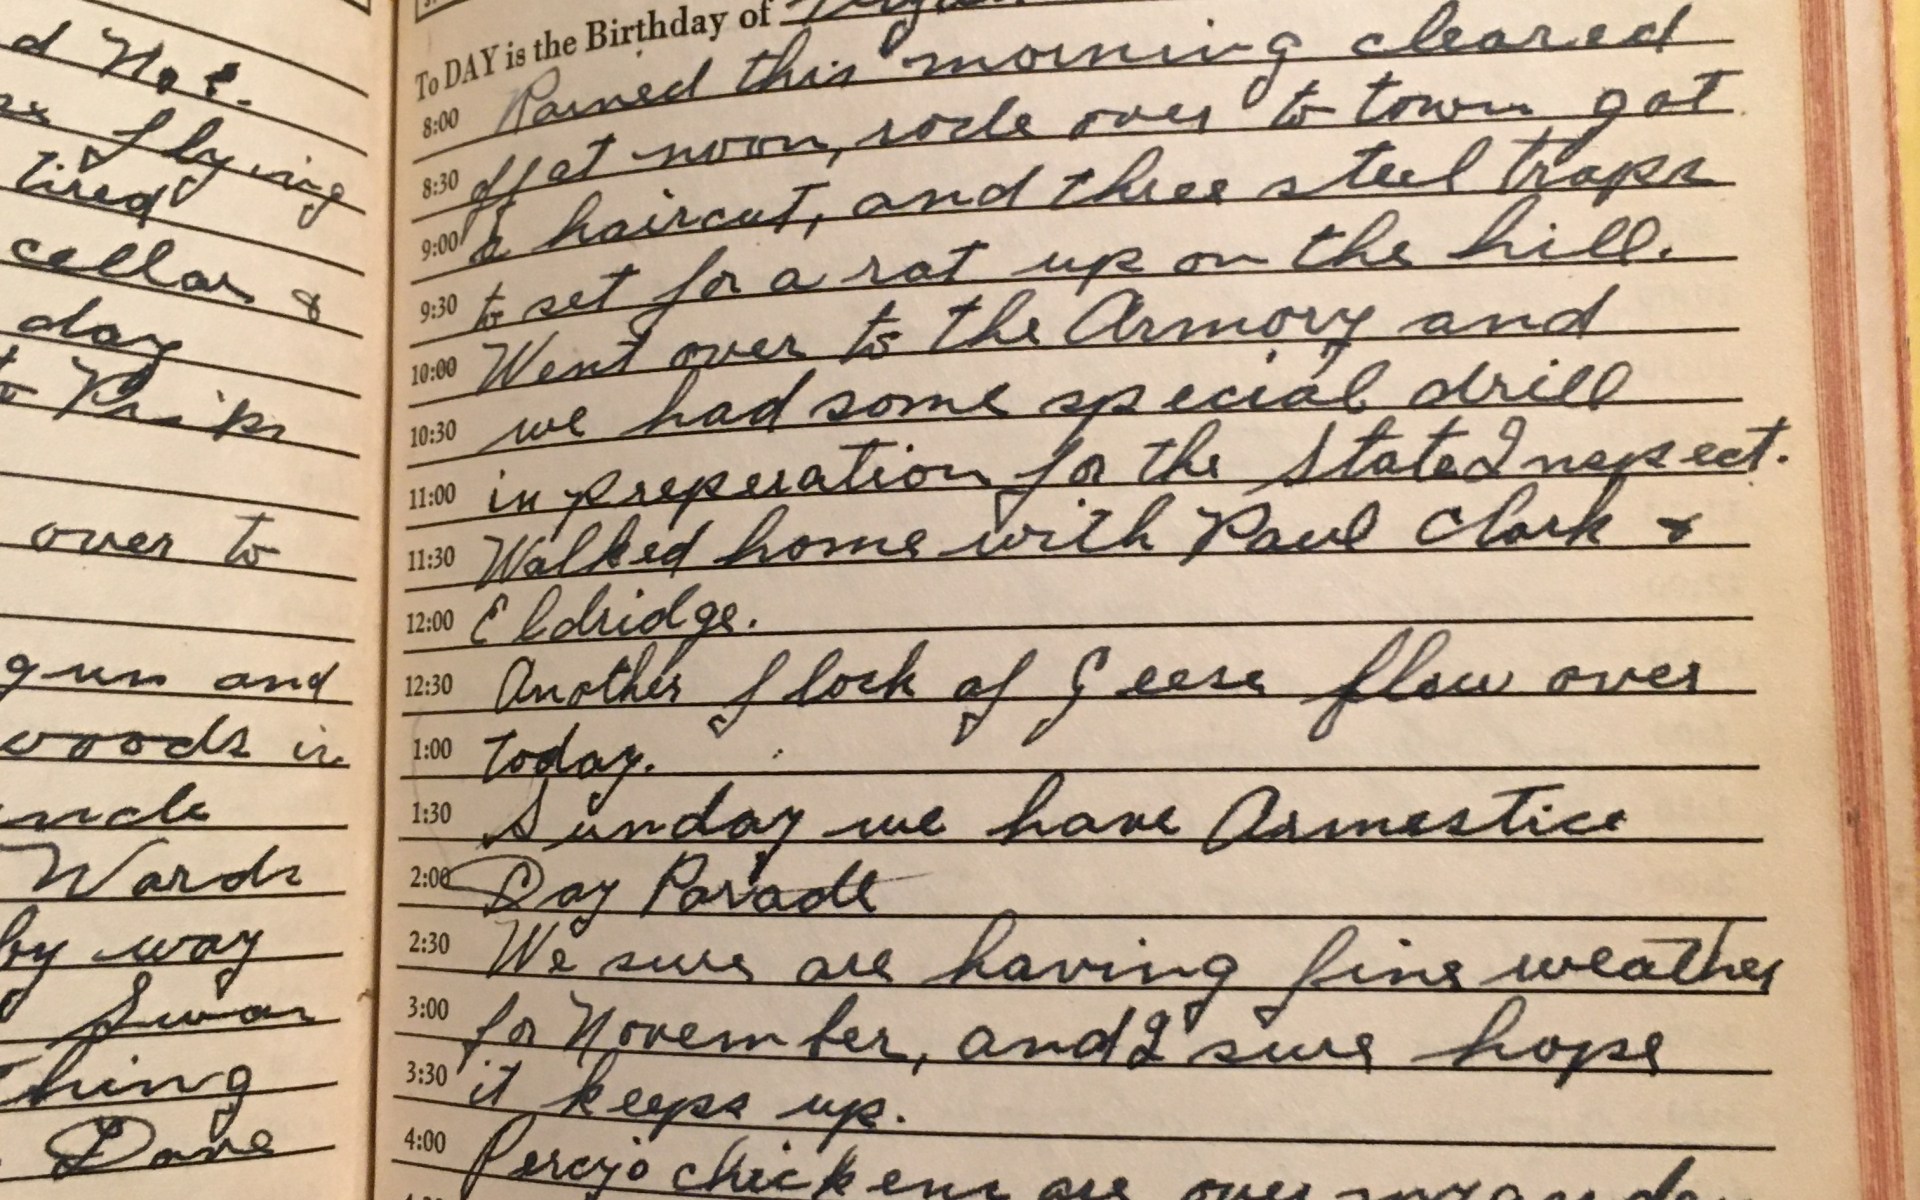 d Not.
flying
tired
cellar &
day
to
over to
gun and
woods in
Wards
by way
Swan
thing
Dave
To DAY is the Birthday of
8:00 Rained this morning cleared
8:30 off at noon, rode over to town got
9:00 a haircut, and three steel traps
9:30 to set for a rat up on the hill.
10:00 Went over to the Armory and
10:30 we had some special drill
11:00 in preperation for the State Inspect.
11:30 Walked home with Paul Clark &
12:00 Eldridge.
12:30 Another flock of Geese flew over
1:00 today.
1:30 Sunday we have Armestice
2:00 Day Parade
2:30 We sure are having fine weather
3:00 for November, and I sure hope
3:30 it keeps up.
4:00 Percy's chickens are over